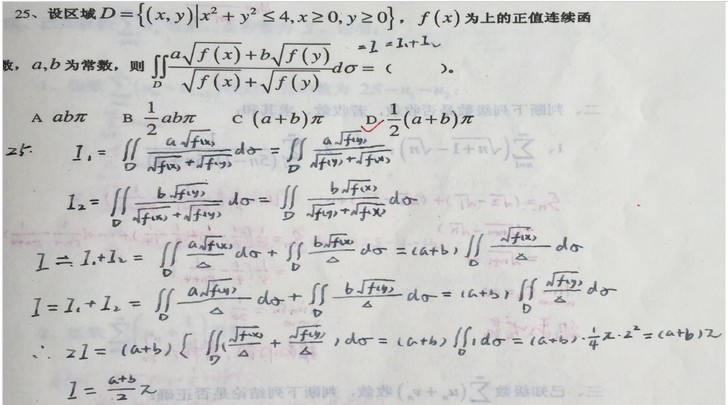 25、设区域 D = {(x, y)|x² + y² ≤ 4, x ≥ 0, y ≥ 0}，f(x)为上的正值连续函
= I = I₁+I₂
数，a, b 为常数，则 ∬_D (a√f(x) + b√f(y))/(√f(x) + √f(y)) dσ = （ ）。
A abπ B 1/2 abπ C (a + b)π D 1/2 (a + b)π
25. I₁ = ∬_D a√f(x)/(√f(x)+√f(y)) dσ = ∬_D a√f(y)/(√f(y)+√f(x)) dσ
I₂ = ∬_D b√f(y)/(√f(x)+√f(y)) dσ = ∬_D b√f(x)/(√f(y)+√f(x)) dσ
I = I₁+I₂ = ∬_D a√f(x)/△ dσ + ∬_D b√f(x)/△ dσ = (a+b) ∬_D √f(x)/△ dσ
I = I₁+I₂ = ∬_D a√f(y)/△ dσ + ∬_D b√f(y)/△ dσ = (a+b) ∬_D √f(y)/△ dσ
∴ 2I = (a+b) [ ∬_D (√f(x)/△ + √f(y)/△) dσ = (a+b) ∬_D 1dσ = (a+b)·1/4 π·2² = (a+b)π
I = a+b/2 π